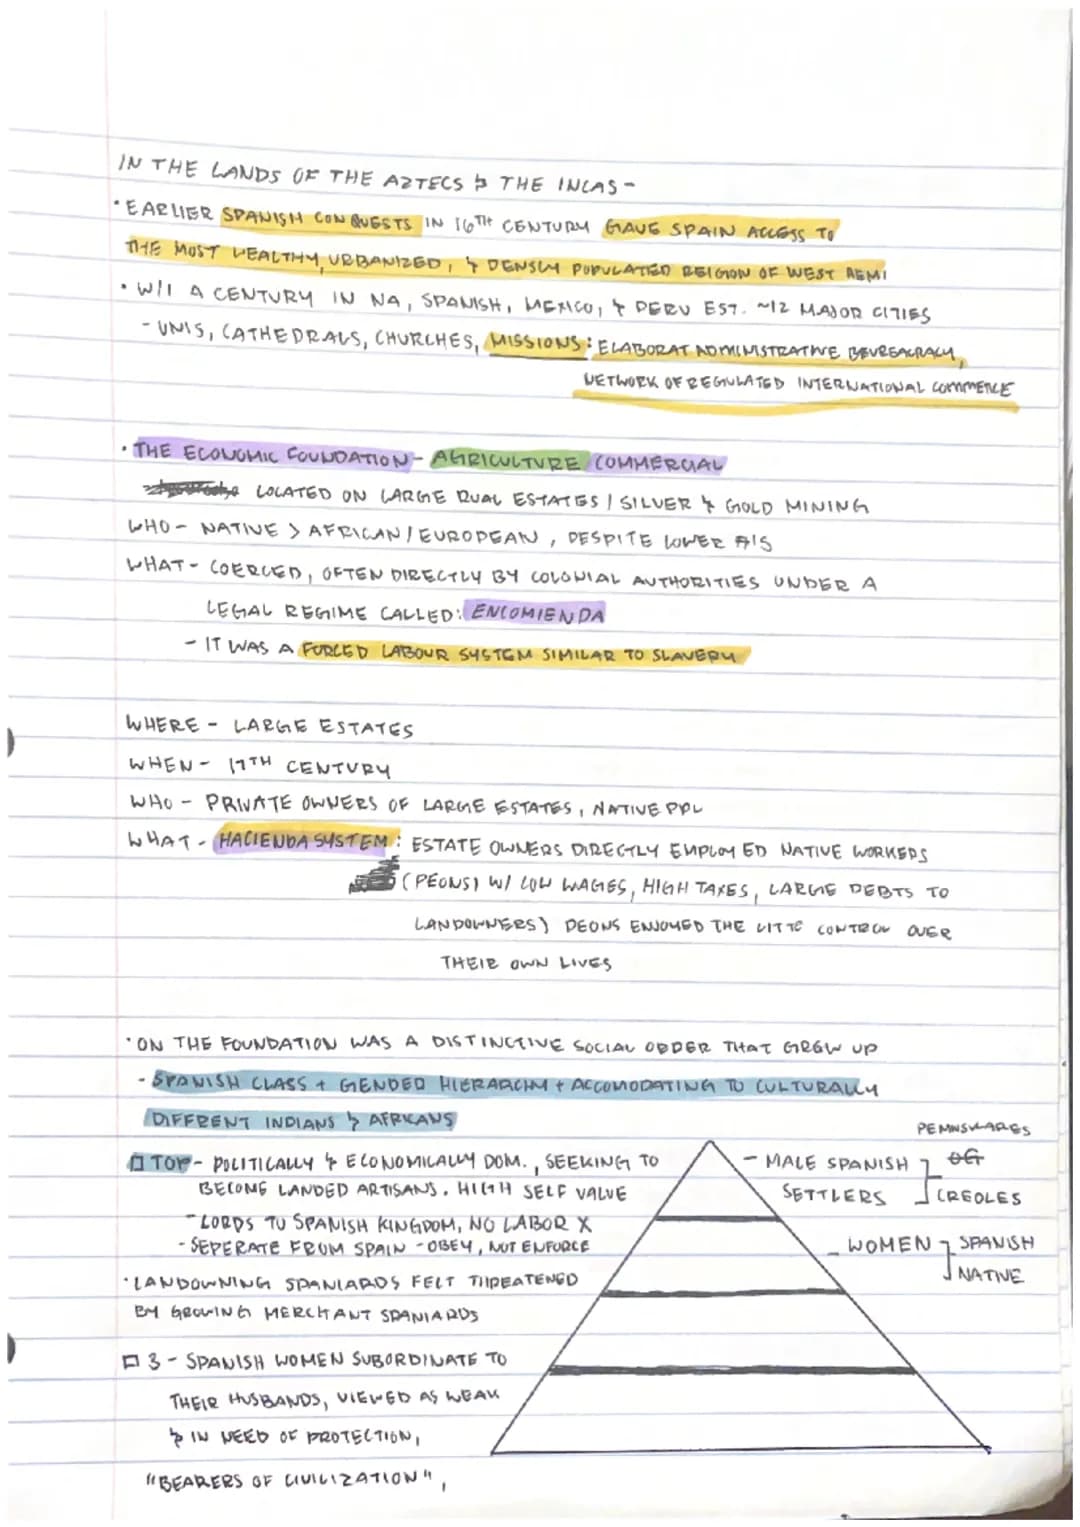 IN THE LANDS OF THE AZTECS & THE INCAS -
• EARLIER SPANISH CONQUESTS IN 16TH CENTURY GAVE SPAIN ACCESS TO
THE MOST WEALTHY, URBANIZED, & DENSLY POPULATED REIGION OF WEST HEMI
• W/I A CENTURY IN NA, SPANISH, MEXICO, & PERU EST. ~12 MAJOR CITIES
- UNIS, CATHEDRALS, CHURCHES, MISSIONS: ELABORAT ADMINISTRATIVE BEUREACRACY,
NETWORK OF REGULATED INTERNATIONAL COMMERCE
• THE ECONOMIC FOUNDATION - AGRICULTURE COMMERCIAL
LOCATED ON LARGE RUAL ESTATES / SILVER & GOLD MINING
WHO - NATIVE > AFRICAN / EUROPEAN, DESPITE LOWER #'S
WHAT - COERCED, OFTEN DIRECTLY BY COLONIAL AUTHORITIES UNDER A
LEGAL REGIME CALLED: ENCOMIENDA
- IT WAS A FORCED LABOUR SYSTEM SIMILAR TO SLAVERY
WHERE - LARGE ESTATES
WHEN - 17TH CENTURY
WHO - PRIVATE OWNERS OF LARGE ESTATES, NATIVE PPL
WHAT - HACIENDA SYSTEM: ESTATE OWNERS DIRECTLY EMPLOYED NATIVE WORKERS
(PEONS) W/ LOW WAGES, HIGH TAXES, LARGE DEBTS TO
LANDOWNERS) PEONS ENJOYED THE LITTE CONTROL OVER
THEIR OWN LIVES
• ON THE FOUNDATION WAS A DISTINCTIVE SOCIAL ORDER THAT GREW UP
- SPANISH CLASS + GENDED HIERARCHY + ACCOMODATING TO CULTURALLY
DIFFRENT INDIANS & AFRICANS
PENINSULARES
□ TOP - POLITICALLY & ECONOMICALLY DOM., SEEKING TO
- MALE SPANISH OG
BECOME LANDED ARTISANS. HIGH SELF VALUE
SETTLERS CREOLES
- LORDS TO SPANISH KINGDOM, NO LABOR X
- SEPERATE FROM SPAIN - OBEY, NOT ENFORCE
- WOMEN SPANISH
NATIVE
• LANDOWNING SPANIARDS FELT THREATENED
BY GROWING MERCHANT SPANIARDS
□ 3 - SPANISH WOMEN SUBORDINATE TO
THEIR HUSBANDS, VIEWED AS WEAK
& IN NEED OF PROTECTION,
"BEARERS OF CIVILIZATION",